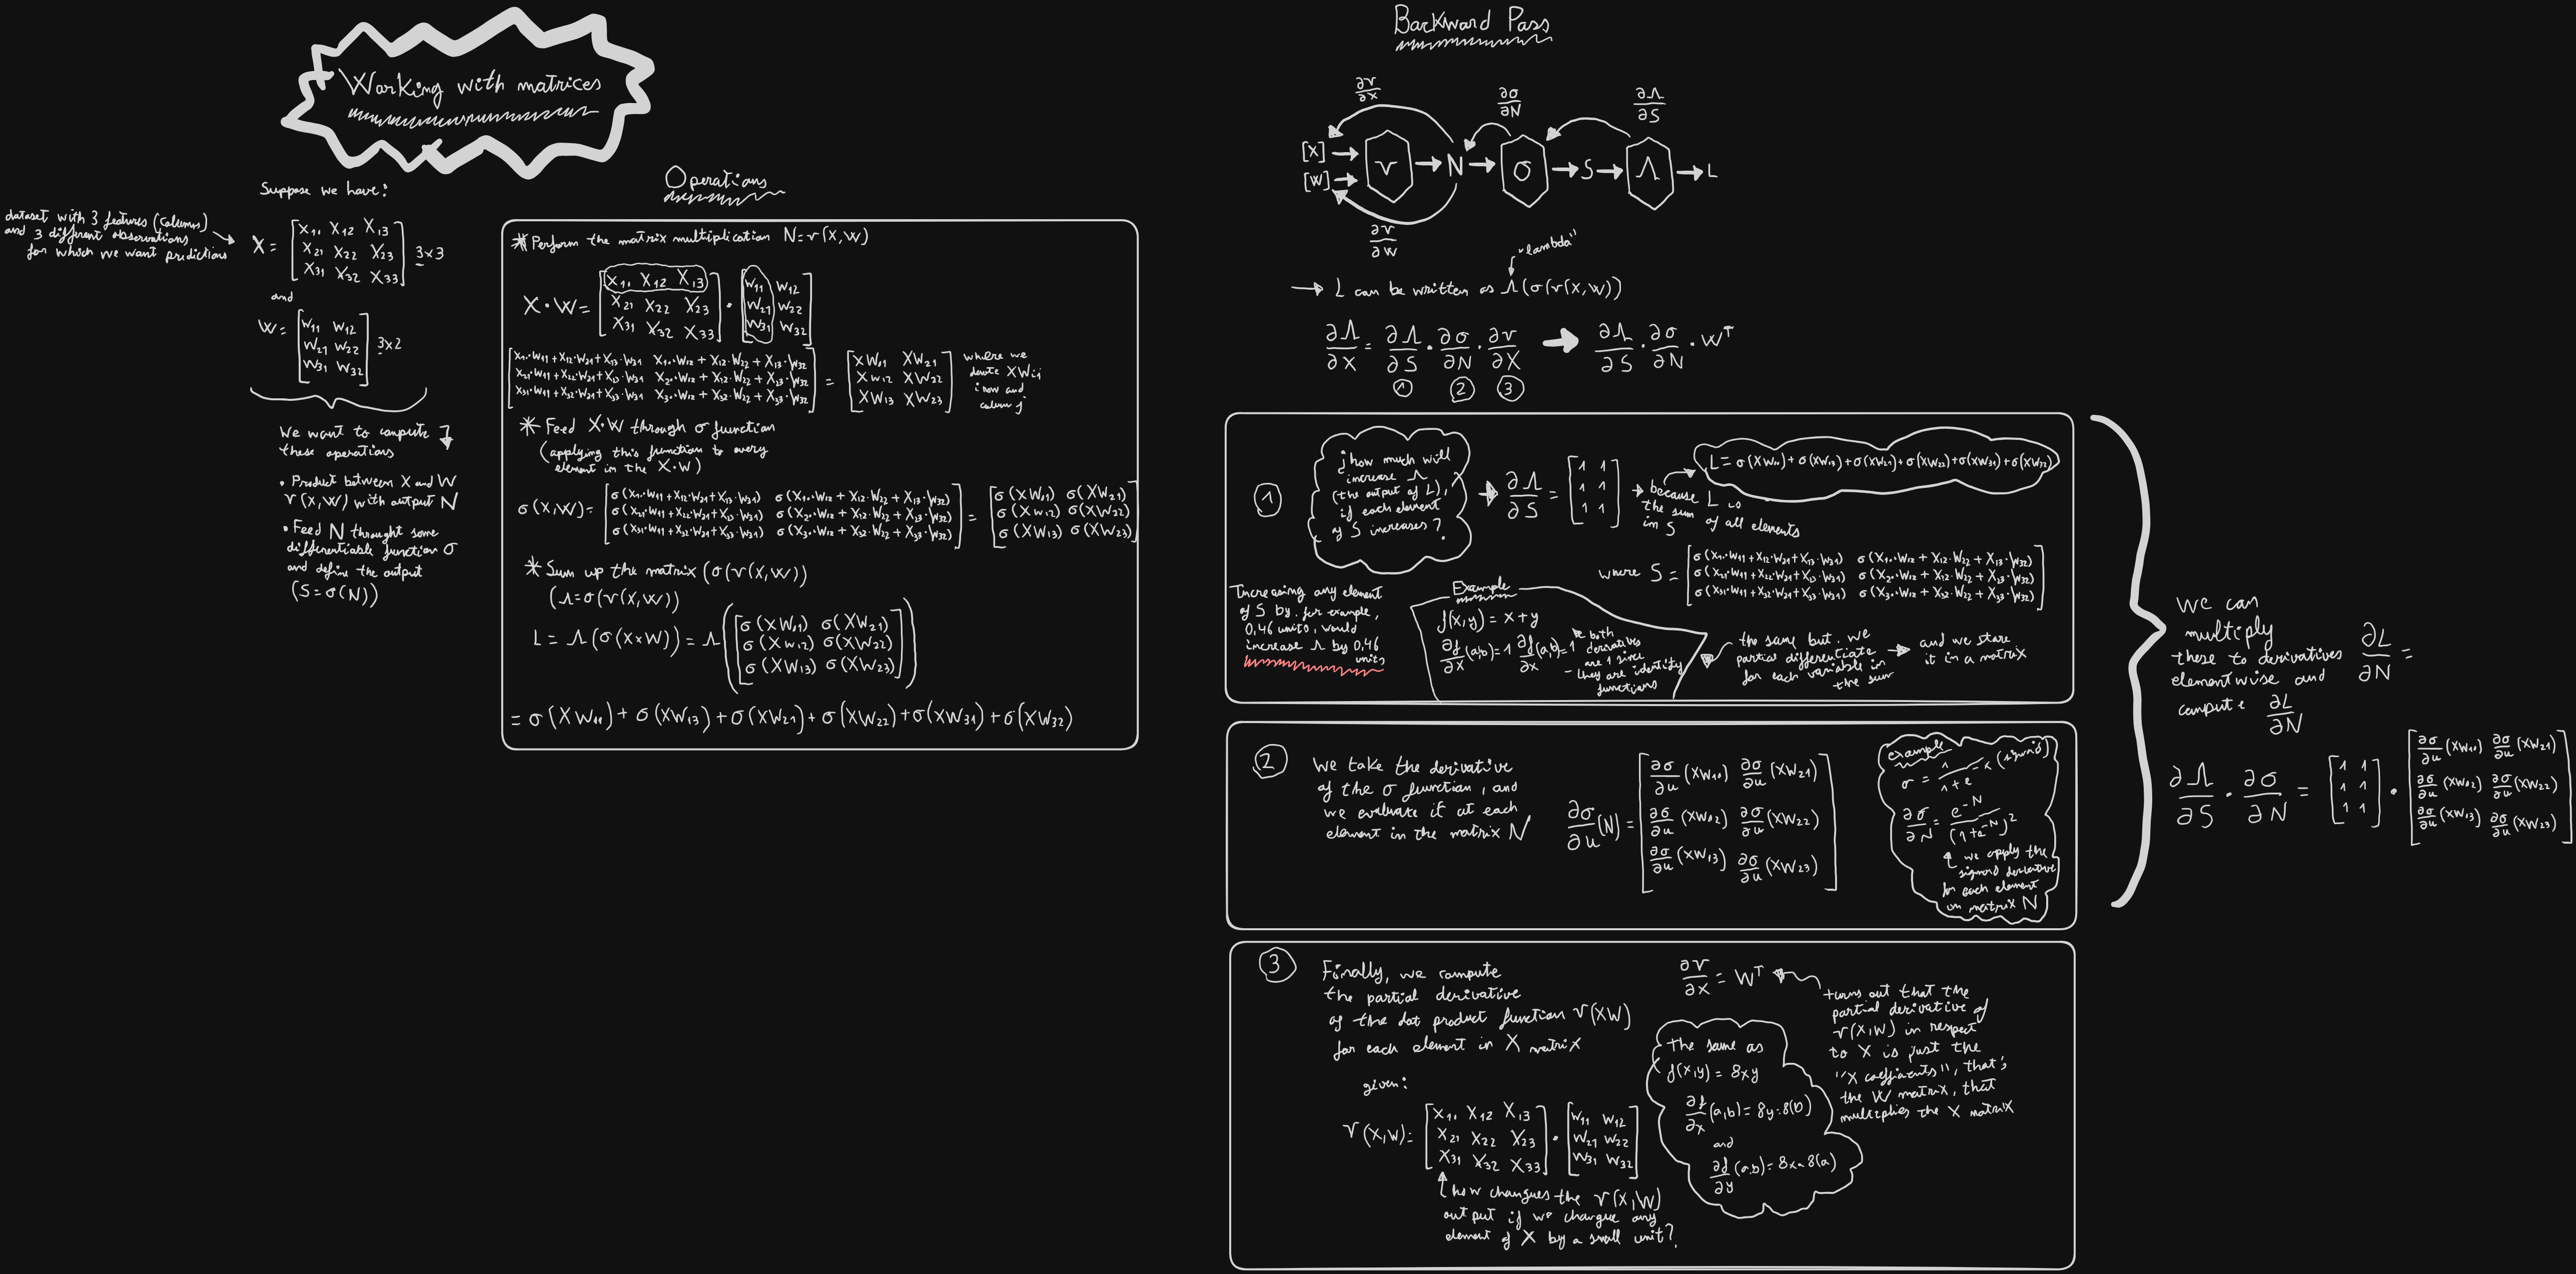 Working with matrices
Suppose we have:
dataset with 3 features (columns)
and 3 different observations
for which we want predictions
X = [X11 X12 X13
X21 X22 X23
X31 X32 X33] 3x3
and
W = [W11 W12
W21 W22
W31 W32] 3x2
We want to compute
these operations
• Product between X and W
ν(X,W) with output N
• Feed N throught some
differentiable function σ
and define the output
(S = σ(N))
Operations
* Perform the matrix multiplication N = ν(X,W)
X·W = [X11 X12 X13
X21 X22 X23
X31 X32 X33] · [W11 W12
W21 W22
W31 W32]
[X11·W11 + X12·W21 + X13·W31 X1·W12 + X12·W22 + X13·W32
X21·W11 + X22·W21 + X23·W31 X2·W12 + X12·W22 + X23·W32
X31·W11 + X32·W21 + X33·W31 X3·W12 + X32·W22 + X33·W32] = [XW11 XW21
XW12 XW22
XW13 XW23]
where we
denote XWij
i row and
column j
* Feed X·W through σ function
(applying this function to every
element in the X·W)
σ(X,W) = [σ(X11·W11 + X12·W21 + X13·W31) σ(X1·W12 + X12·W22 + X13·W32)
σ(X21·W11 + X22·W21 + X23·W31) σ(X2·W12 + X12·W22 + X23·W32)
σ(X31·W11 + X32·W21 + X33·W31) σ(X3·W12 + X32·W22 + X33·W32)] = [σ(XW11) σ(XW21)
σ(XW12) σ(XW22)
σ(XW13) σ(XW23)]
* Sum up the matrix (σ(ν(X,W))
(Λ = σ(ν(X,W))
L = Λ(σ(X×W)) = Λ([σ(XW11) σ(XW21)
σ(XW12) σ(XW22)
σ(XW13) σ(XW23)])
= σ(XW11) + σ(XW13) + σ(XW21) + σ(XW22) + σ(XW31) + σ(XW32)
Backward Pass
∂ν/∂X ∂σ/∂N ∂Λ/∂S
[X]
[W] ν N σ S Λ L
∂ν/∂W
"lambda"
→ L can be written as Λ(σ(ν(X,W))
∂Λ/∂X = ∂Λ/∂S · ∂σ/∂N · ∂ν/∂X → ∂Λ/∂S · ∂σ/∂N · W^T
1 2 3
1
¿how much will
increase Λ
(the output of L),
if each element
of S increases?
→ ∂Λ/∂S = [1 1
1 1
1 1]
→ because L is
the sum of all elements
in S
L = σ(XW11) + σ(XW13) + σ(XW21) + σ(XW22) + σ(XW31) + σ(XW32)
where S = [σ(X11·W11 + X12·W21 + X13·W31) σ(X1·W12 + X12·W22 + X13·W32)
σ(X21·W11 + X22·W21 + X23·W31) σ(X2·W12 + X12·W22 + X23·W32)
σ(X31·W11 + X32·W21 + X33·W31) σ(X3·W12 + X32·W22 + X33·W32)]
Increasing any element
of S by, for example,
0,46 units, would
increase Λ by 0,46
units
Example
f(x,y) = x+y
∂f/∂x (a,b) = 1 ∂f/∂x (a,b) = 1
both
derivatives
are 1 since
they are identity
functions
the same but, we
partial differentiate
for each variable in
the sum
→ and we store
it in a matrix
2
We take the derivative
of the σ function, and
we evaluate it at each
element in the matrix N
∂σ/∂u (N) = [∂σ/∂u (XW11) ∂σ/∂u (XW21)
∂σ/∂u (XW12) ∂σ/∂u (XW22)
∂σ/∂u (XW13) ∂σ/∂u (XW23)]
example
σ = 1/(1+e^-x) (sigmoid)
∂σ/∂N = e^-N/(1+e^-N)^2
we apply the
sigmoid derivative
for each element
on matrix N
We can
multiply
these to derivatives
elementwise and
compute ∂L/∂N
∂L/∂N =
∂Λ/∂S · ∂σ/∂N = [1 1
1 1
1 1] · [∂σ/∂u (XW11) ∂σ/∂u (XW21)
∂σ/∂u (XW12) ∂σ/∂u (XW22)
∂σ/∂u (XW13) ∂σ/∂u (XW23)]
3
Finally, we compute
the partial derivative
of the dot product function ν(XW)
for each element in X matrix
given:
ν(X,W) = [X11 X12 X13
X21 X22 X23
X31 X32 X33] · [W11 W12
W21 W22
W31 W32]
how changues the ν(X,W)
output if we changue any
element of X by a small unit?
∂ν/∂X = W^T
turns out that the
partial derivative of
ν(X,W) in respect
to X is just the
"X coefficients", that's
the W matrix, that
multiplies the X matrix
The same as
f(x,y) = 8xy
∂f/∂x (a,b) = 8y = 8(b)
and
∂f/∂y (a,b) = 8x = 8(a)